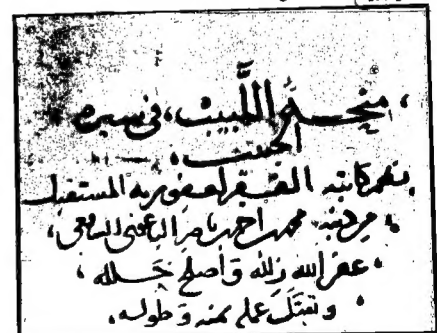 منحة اللبيب، في سيرة
الحبيب،
نظم كاتبه الفقير لعفو ربه المستقيل
من ذنبه محمد احمد ناصر الباعوني الشافعي،
غفر الله زلله وأصلح خلله،
وتقبل عمله بمنه وطوله.